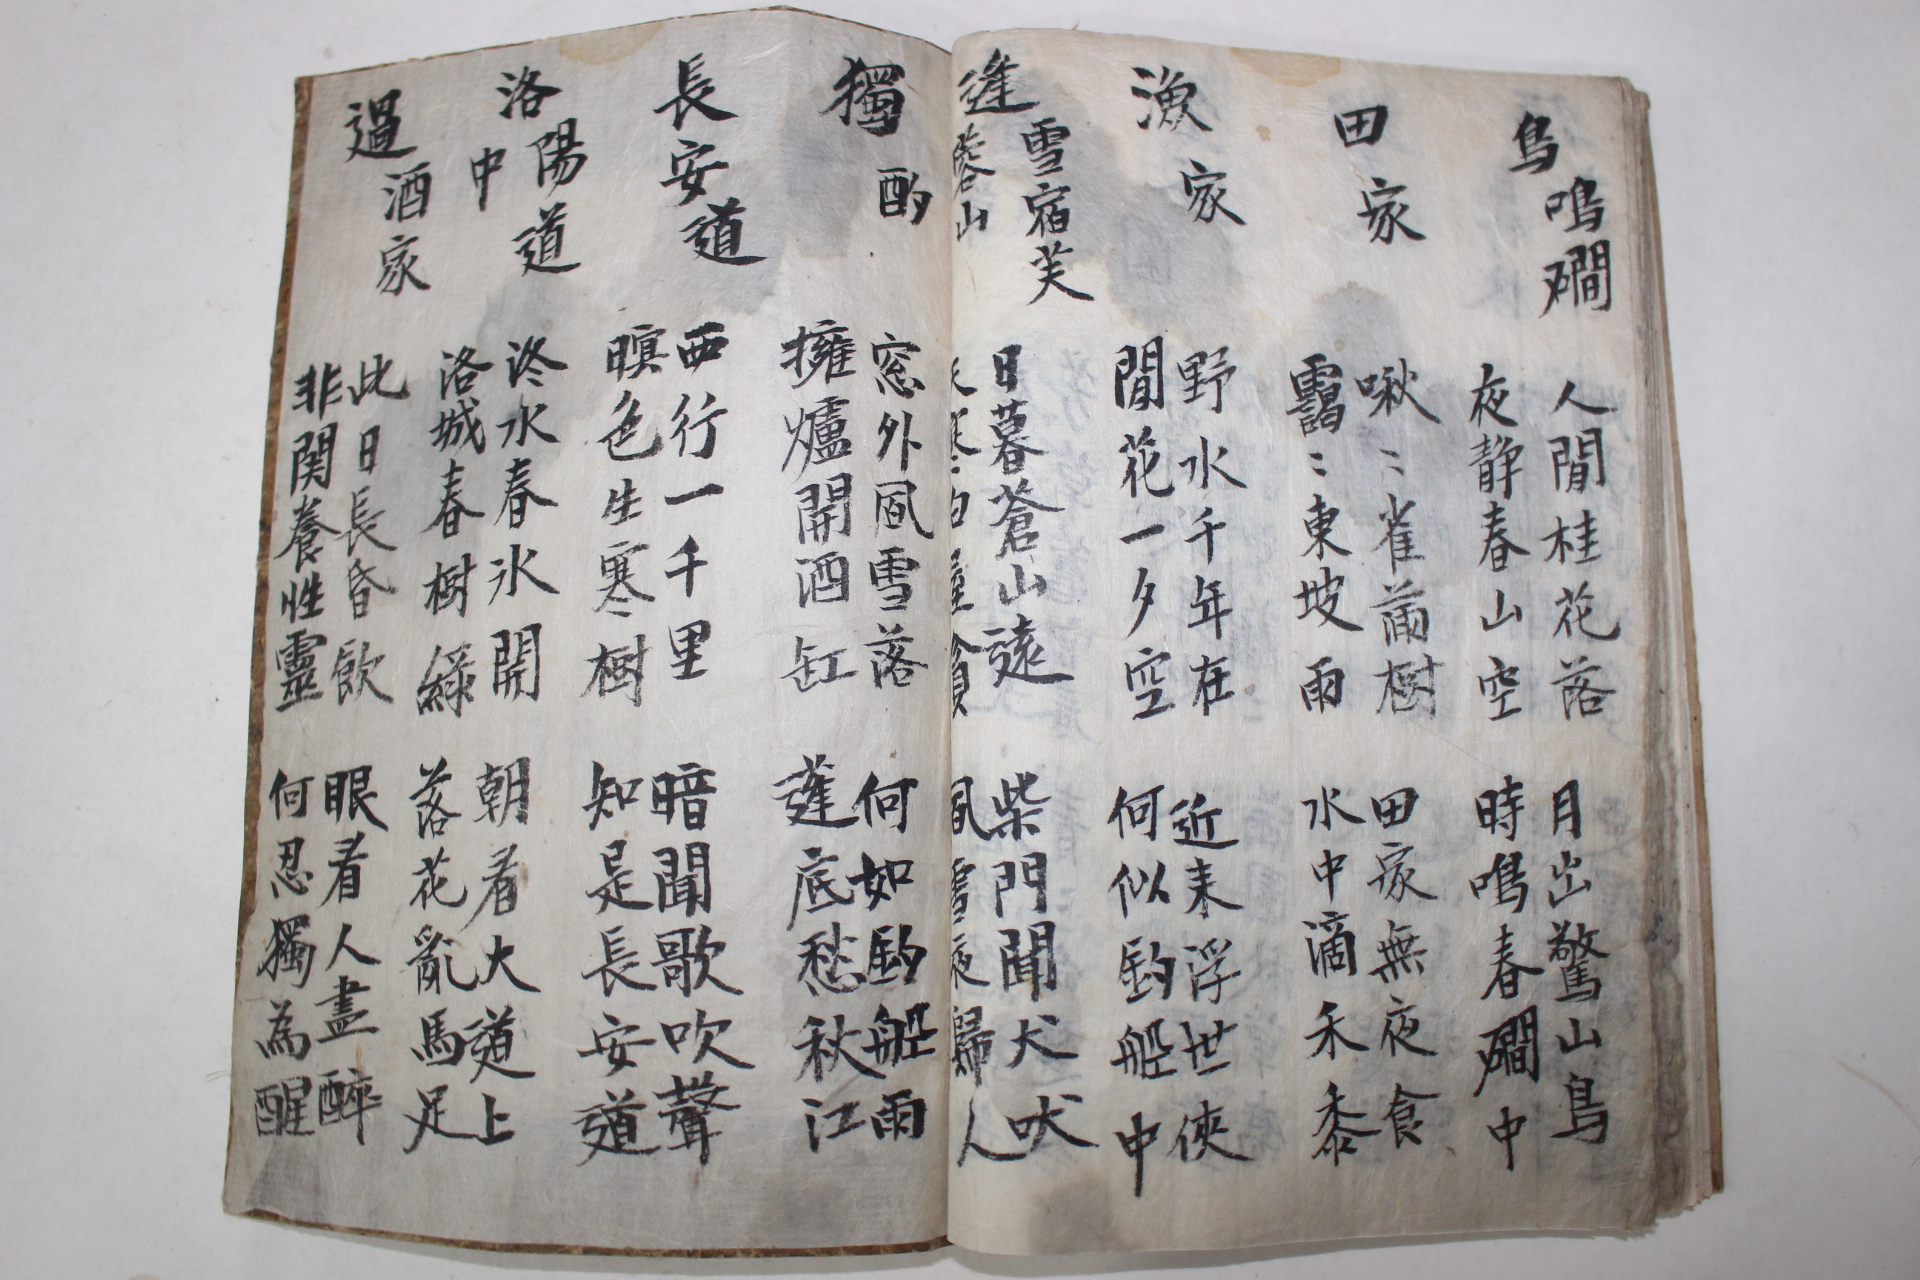 鳥鳴磵
人閒桂花落
夜静春山空
月出驚山鳥
時鳴春磵中
田家
啾〻雀滿樹
靄〻東坡雨
田家無夜食
水中滴禾黍
漁家
野水千年在
閒花一夕空
近来浮世俠
何似釣船中
逢雪宿芙
蓉山
日暮蒼山遠
天寒白屋貧
柴門聞犬吠
風雪夜歸人
獨酌
窓外風雪落
擁爐開酒缸
何如釣船雨
蓬底愁秋江
長安道
西行一千里
暝色生寒樹
暗聞歌吹聲
知是長安道
洛陽道
中
洛水春氷開
洛城春樹綠
朝看大道上
落花亂馬足
過酒家
此日長昏飮
非関養性靈
眼看人盡醉
何忍獨為醒